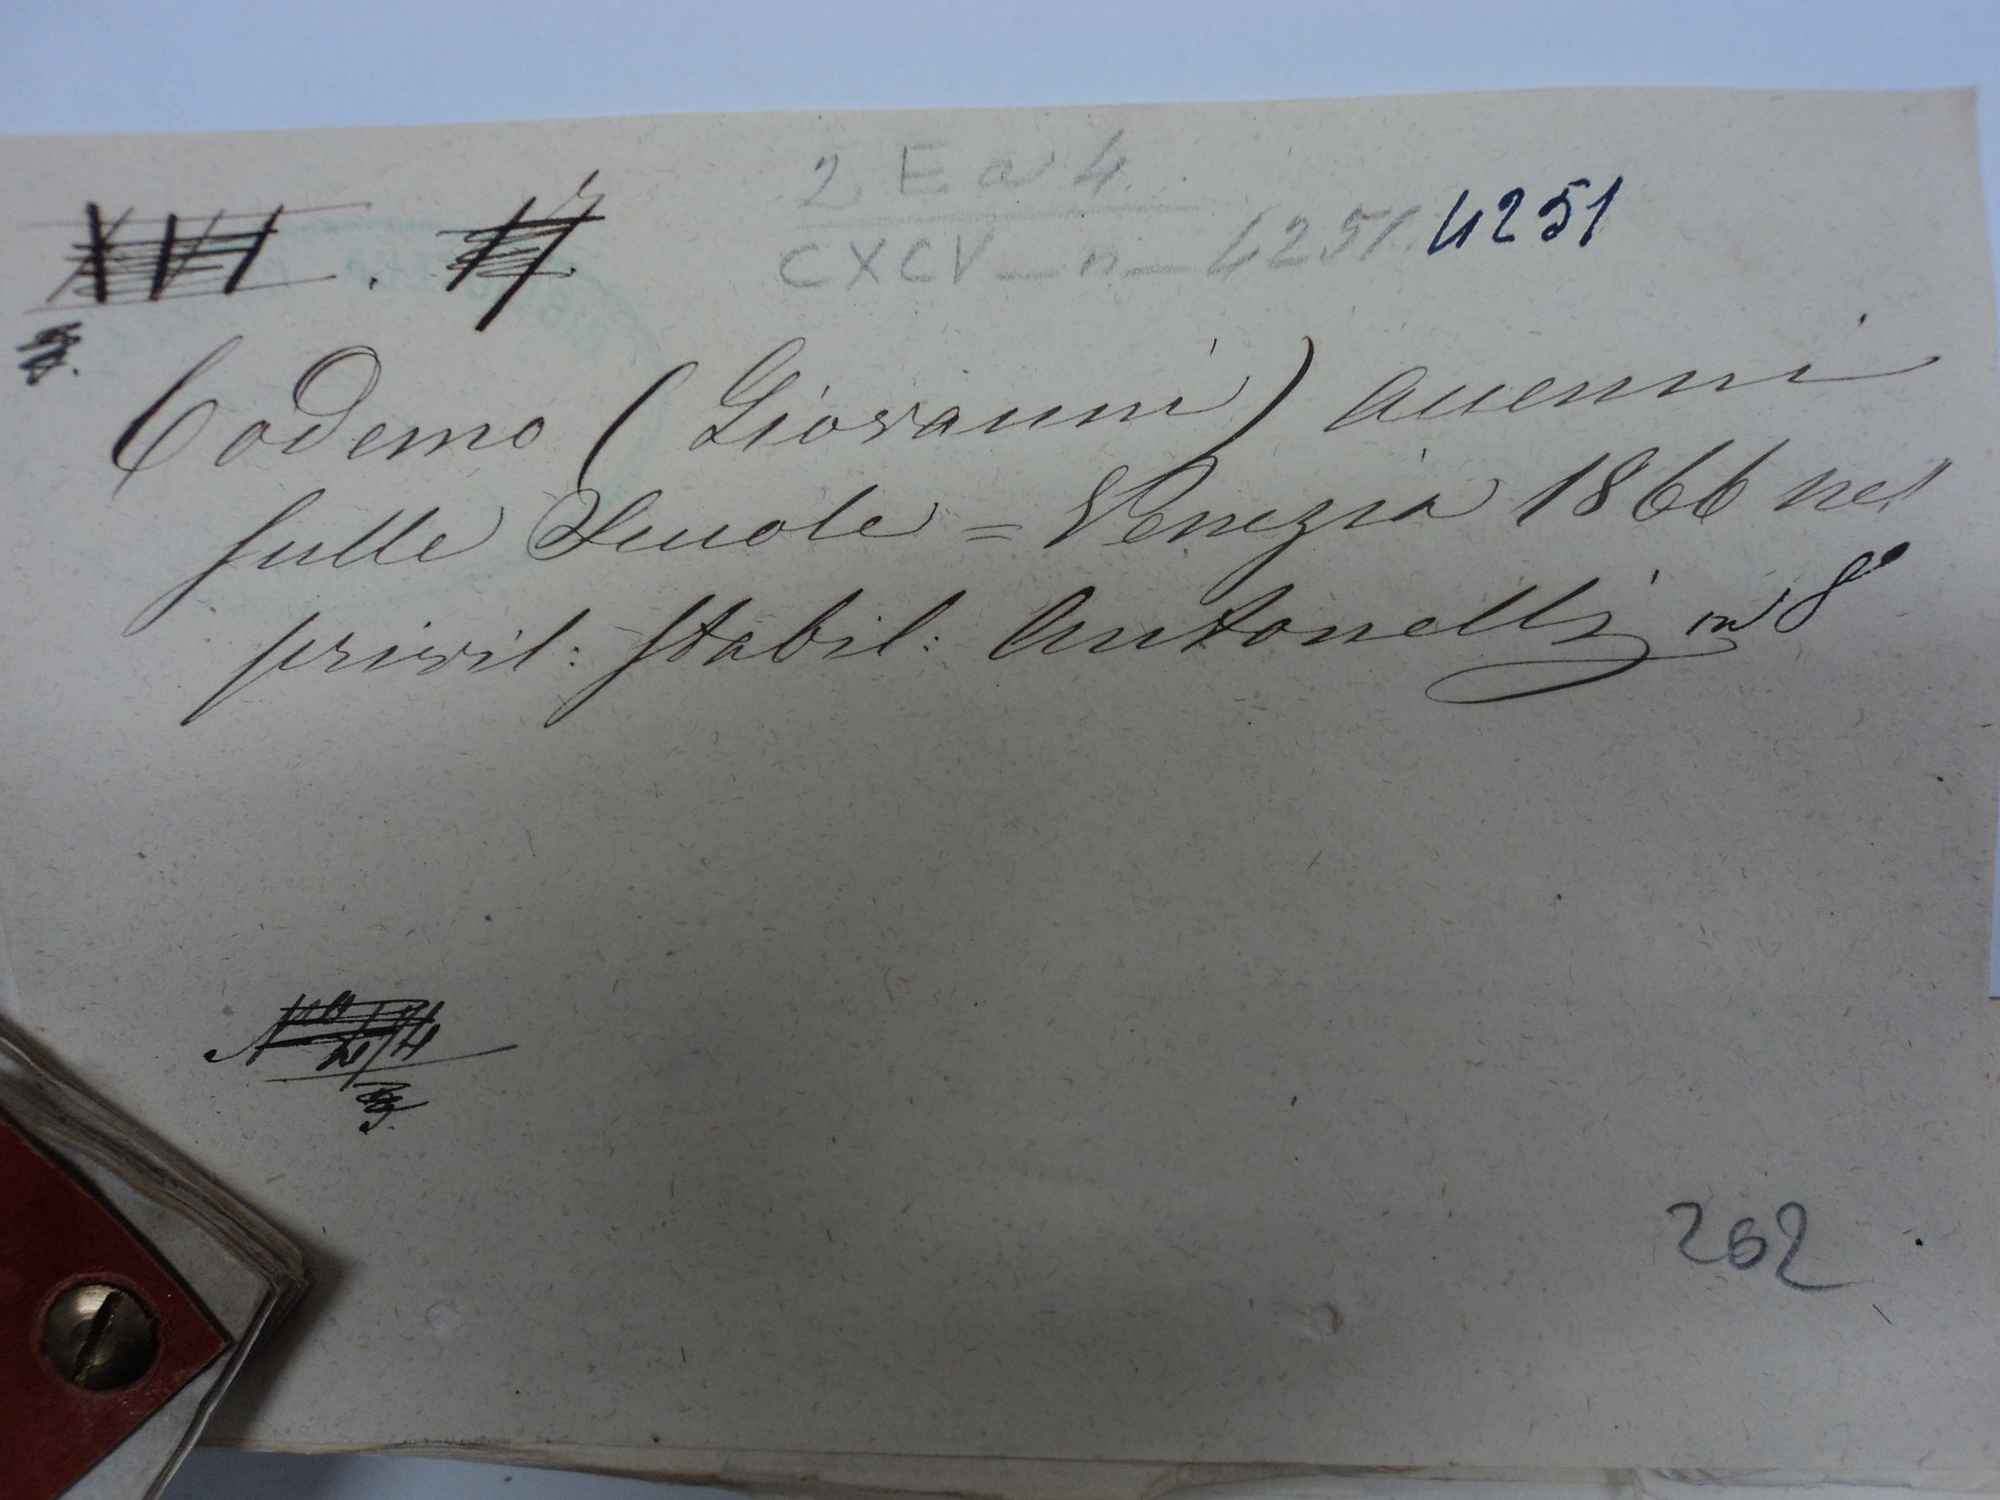 XVI . 17
2 E a 4
CXCV - n - 4251. 4251
Codemo (Giovanni) Accenni
sulle Scuole = Venezia 1866 nel
privil: stabil: Antonelli in 8°
262